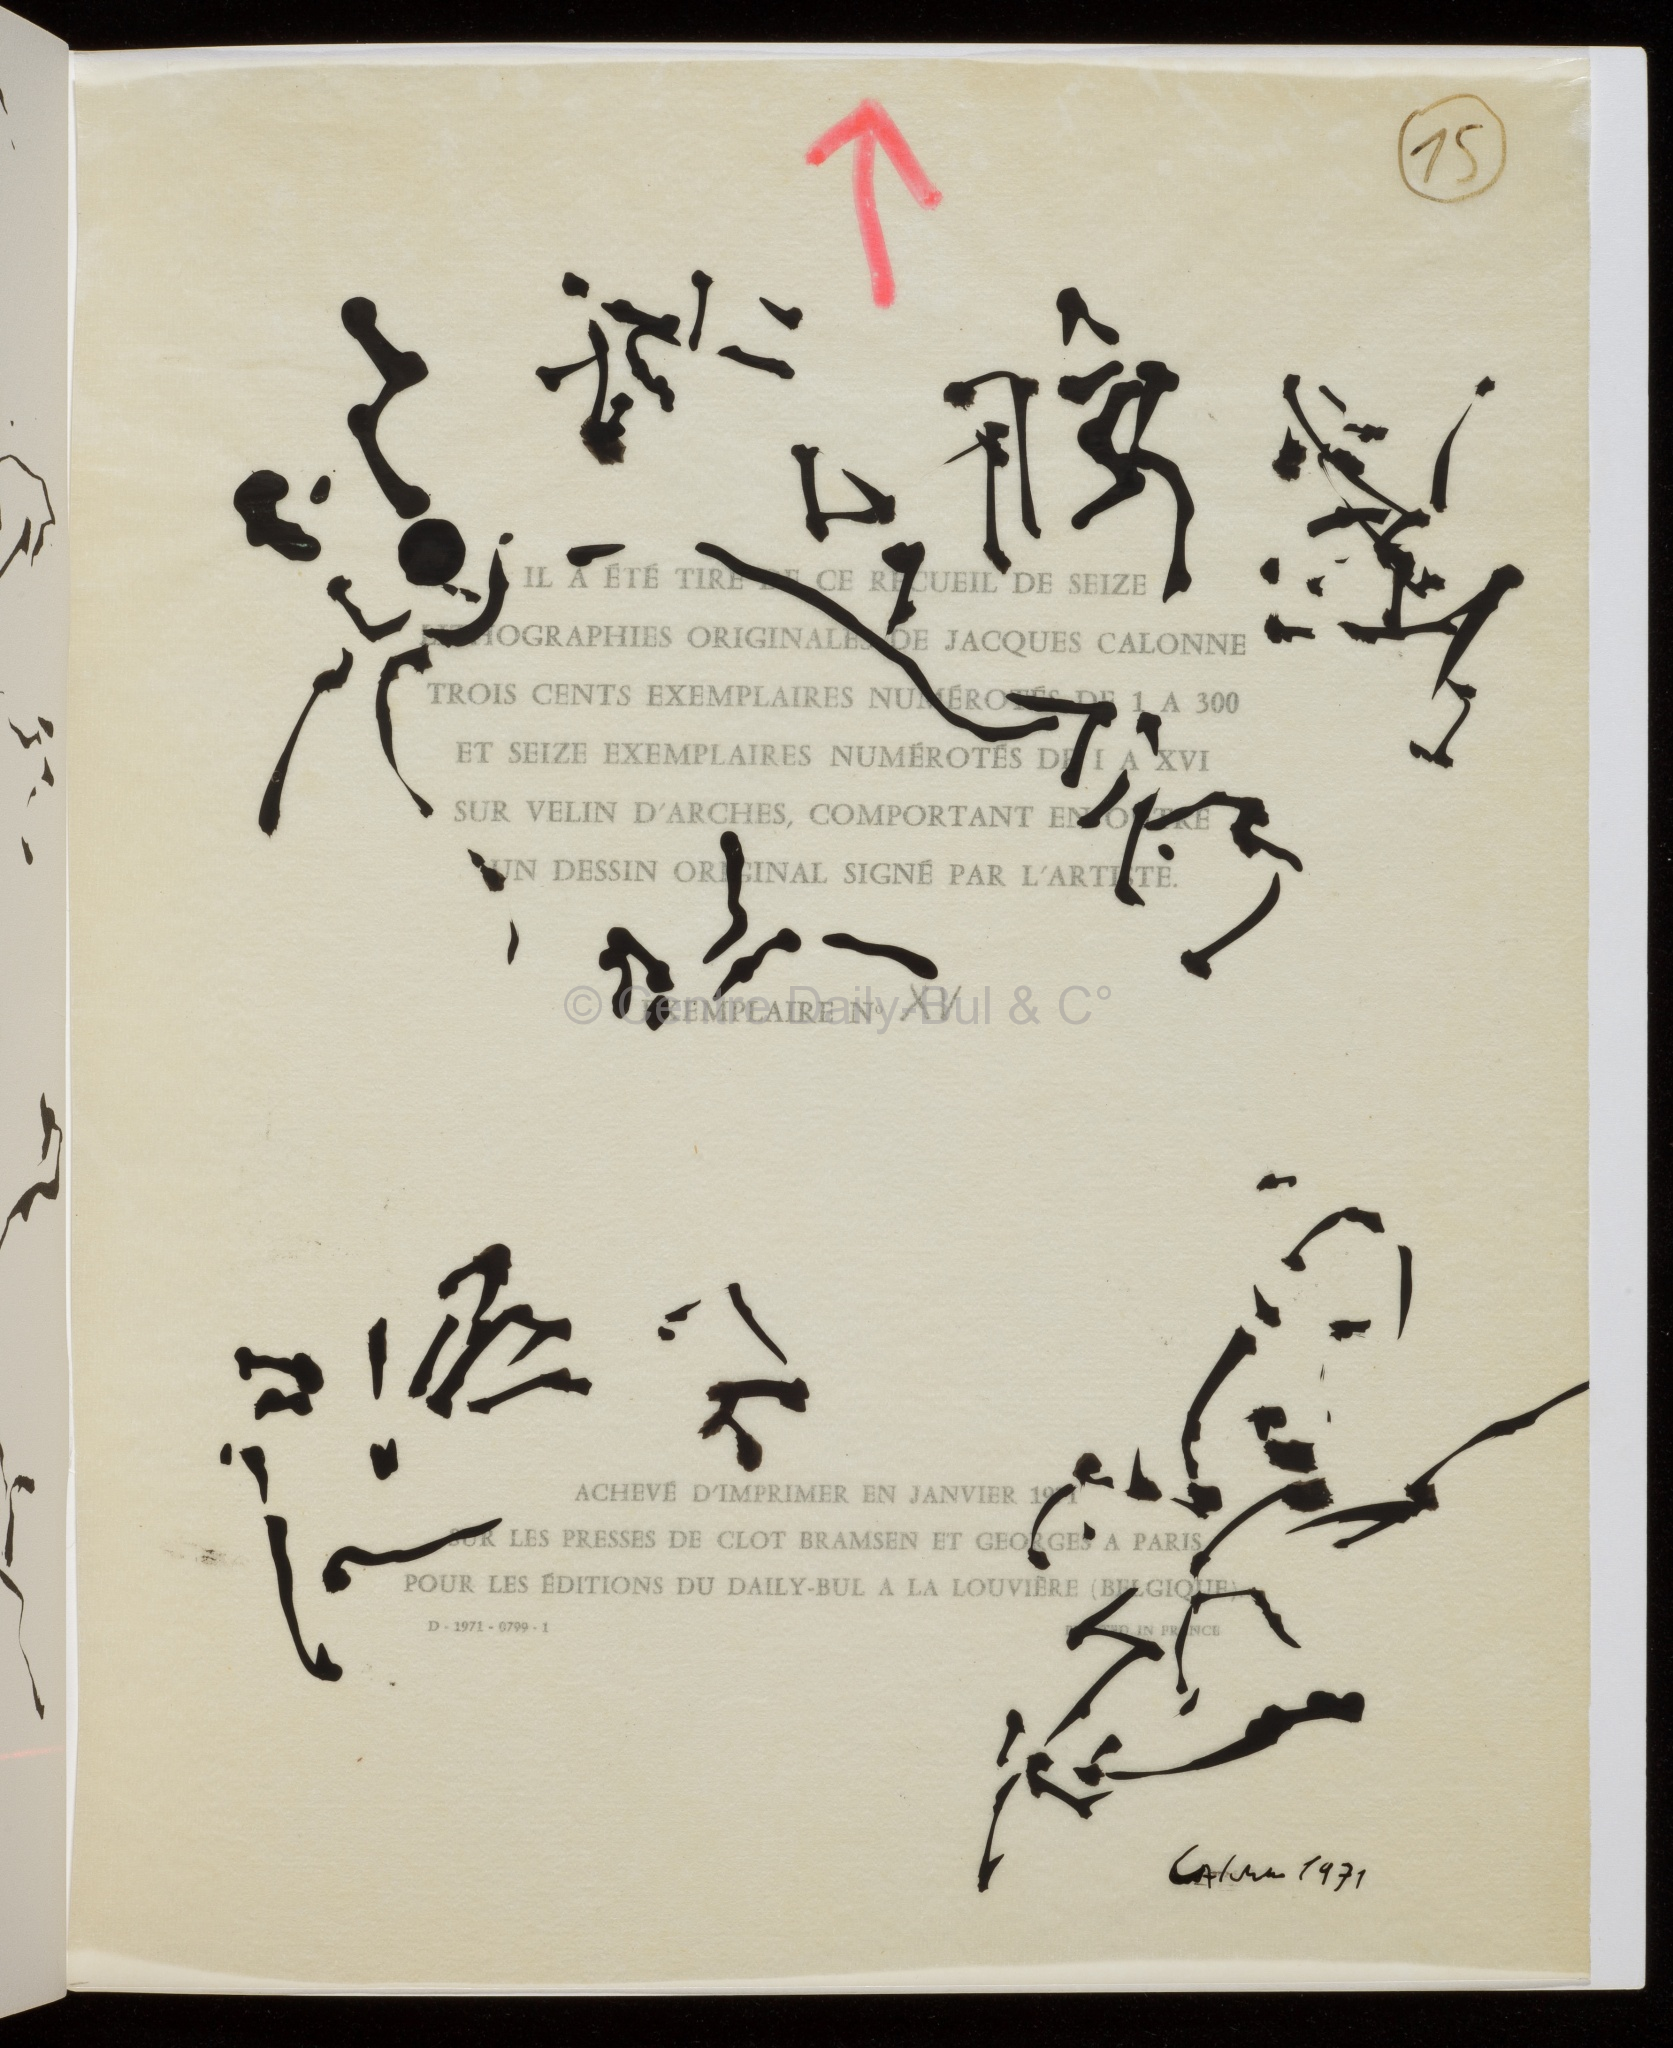 15
IL A ÉTÉ TIRÉ DE CE RECUEIL DE SEIZE
LITHOGRAPHIES ORIGINALES DE JACQUES CALONNE
TROIS CENTS EXEMPLAIRES NUMÉROTÉS DE 1 A 300
ET SEIZE EXEMPLAIRES NUMÉROTÉS DE I A XVI
SUR VELIN D'ARCHES, COMPORTANT EN OUTRE
UN DESSIN ORIGINAL SIGNÉ PAR L'ARTISTE.
EXEMPLAIRE N° XV
© Centre Daily-Bul & C°
ACHEVÉ D'IMPRIMER EN JANVIER 1971
SUR LES PRESSES DE CLOT BRAMSEN ET GEORGES A PARIS
POUR LES ÉDITIONS DU DAILY-BUL A LA LOUVIÈRE (BELGIQUE)
D - 1971 - 0799 - 1 PRINTED IN FRANCE
Calonne 1971